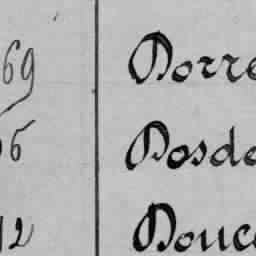 69 Dorre
56 Dosde
12 Douce